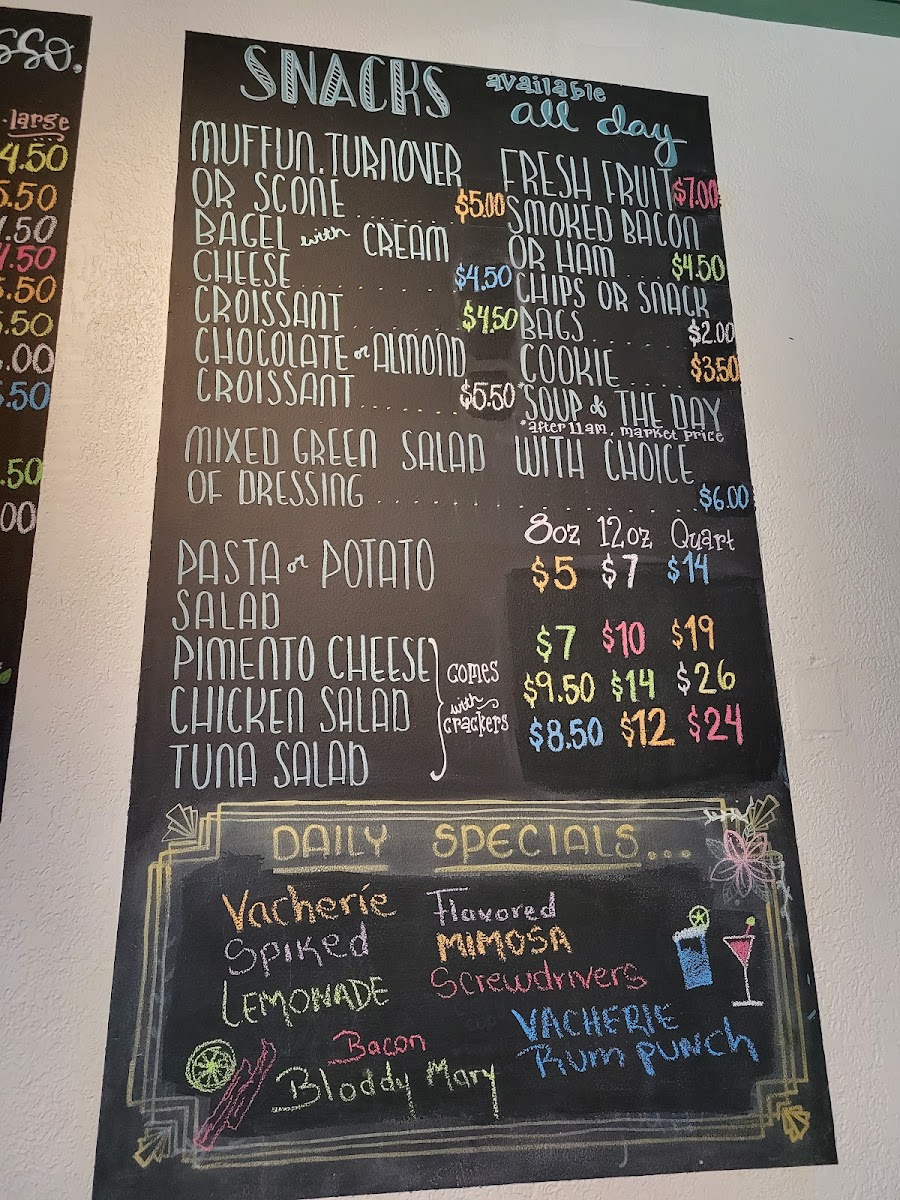 sso.
large
4.50
5.50
.50
4.50
5.50
5.50
.00
5.50
.50
00
SNACKS available
all day
MUFFUN, TURNOVER
OR SCONE........ $5.00
BAGEL with CREAM
CHEESE........ $4.50
CROISSANT........ $4.50
CHOCOLATE or ALMOND
CROISSANT........ $5.50
FRESH FRUIT $7.00
SMOKED BACON
OR HAM.... $4.50
CHIPS OR SNACK
BAGS........ $2.00
COOKIE..... $3.50
*SOUP of THE DAY
*after 11am, market price
MIXED GREEN SALAD WITH CHOICE
OF DRESSING........ $6.00
8oz 12oz Quart
PASTA or POTATO $5 $7 $14
SALAD
PIMENTO CHEESE $7 $10 $19
CHICKEN SALAD $9.50 $14 $26
TUNA SALAD $8.50 $12 $24
comes
with
crackers
DAILY SPECIALS...
Vacherie
Spiked
LEMONADE
Flavored
MIMOSA
Screwdrivers
Bacon
Bloddy Mary
VACHERIE
Rum punch